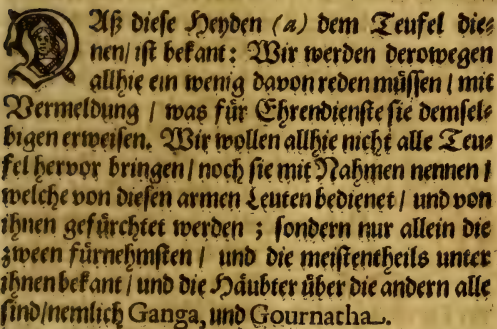 DAß diese Heyden (a) dem Teufel die⸗
nen/ ist bekant: Wir werden derowegen
allhie ein wenig davon reden müssen / mit
Vermeldung / was für Ehrendienste sie demsel⸗
bigen erweisen. Wir wollen allhie nicht alle Teu⸗
fel hervor bringen / noch sie mit Nahmen nennen /
welche von diesen armen Leuten bedienet / und von
ihnen gefürchtet werden ; sondern nur allein die
zween fürnehmsten / und die meistentheils unter
ihnen bekant / und die Häubter über die andern alle
sind/nemlich Ganga, und Gournatha.